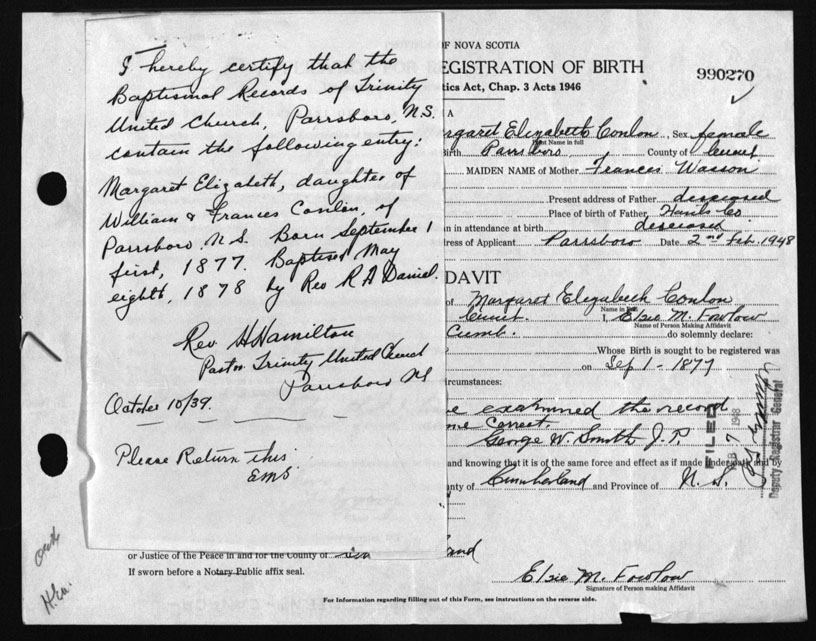 I hereby certify that the
Baptismal Records of Trinity
United Church, Parrsboro, N.S.
contain the following entry:
Margaret Elizabeth, daughter of
William & Frances Conlon, of
Parrsboro, N.S. Born September
first, 1877. Baptised May
eighth, 1878 by Rev R A Daniel.
Rev H Hamilton
Pastor Trinity United Church
Parrsboro NS
October 10/39.
Please Return this
EMS.
OF NOVA SCOTIA
REGISTRATION OF BIRTH
990270
tics Act, Chap. 3 Acts 1946
A
rgaret Elizabeth Conlon, Sex female
Print Name in full
Birth Parrsboro County of
MAIDEN NAME of Mother Frances Wasson
Present address of Father deseased
Place of birth of Father Hants Co.
an in attendance at birth deseased
ress of Applicant Parrsboro Date 2nd Feb. 1948
DAVIT
of Margaret Elizabeth Conlon
Name in full
I, Elsie M. Fowlow
Name of Person Making Affidavit
Cumb. do solemnly declare:
Whose Birth is sought to be registered was
on Sep 1 - 1877
ircumstances:
ve examined the record
me Correct
George W. Smith J.P.
and knowing that it is of the same force and effect as if made under oath and by
nty of Cumberland and Province of N.S.
FILED
FEB 7 1948
Deputy Registrar General
or Justice of the Peace in and for the County of
land
If sworn before a Notary Public affix seal.
Elsie M. Fowlow
Signature of Person making Affidavit
For Information regarding filling out of this Form, see instructions on the reverse side.